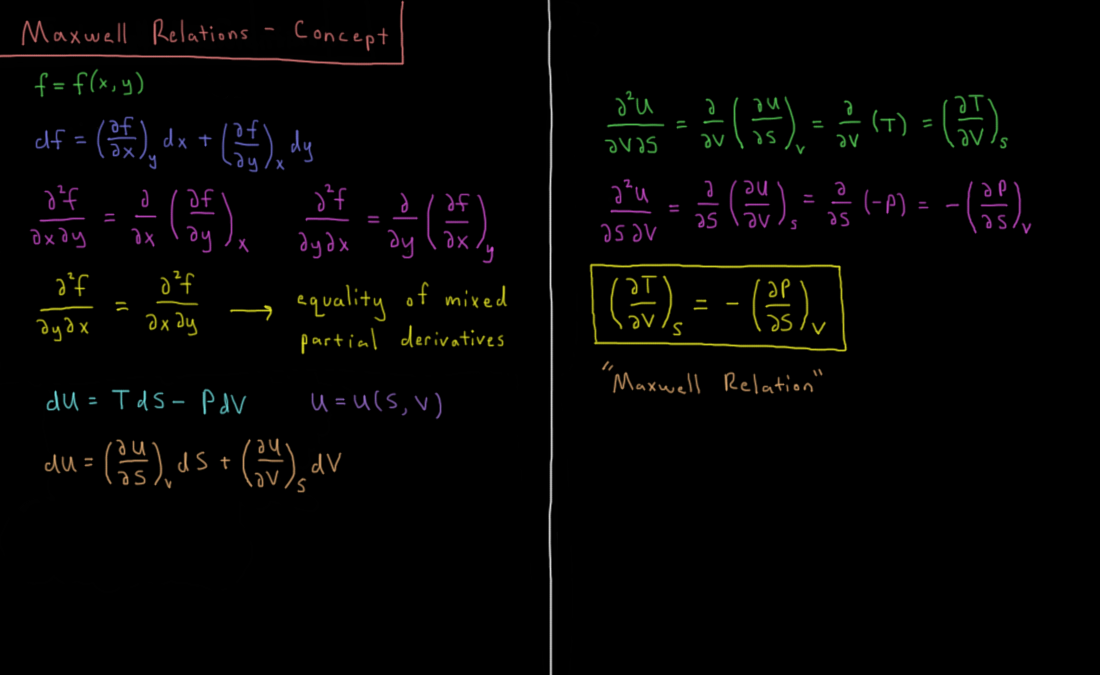 Maxwell Relations - Concept
f = f(x,y)
df = (∂f/∂x)_y dx + (∂f/∂y)_x dy
∂²f/∂x∂y = ∂/∂x (∂f/∂y)_x   ∂²f/∂y∂x = ∂/∂y (∂f/∂x)_y
∂²f/∂y∂x = ∂²f/∂x∂y → equality of mixed
partial derivatives
dU = TdS - PdV   U = U(S,V)
dU = (∂U/∂S)_V dS + (∂U/∂V)_S dV
∂²U/∂V∂S = ∂/∂V (∂U/∂S)_V = ∂/∂V (T) = (∂T/∂V)_S
∂²U/∂S∂V = ∂/∂S (∂U/∂V)_S = ∂/∂S (-P) = -(∂P/∂S)_V
(∂T/∂V)_S = -(∂P/∂S)_V
"Maxwell Relation"